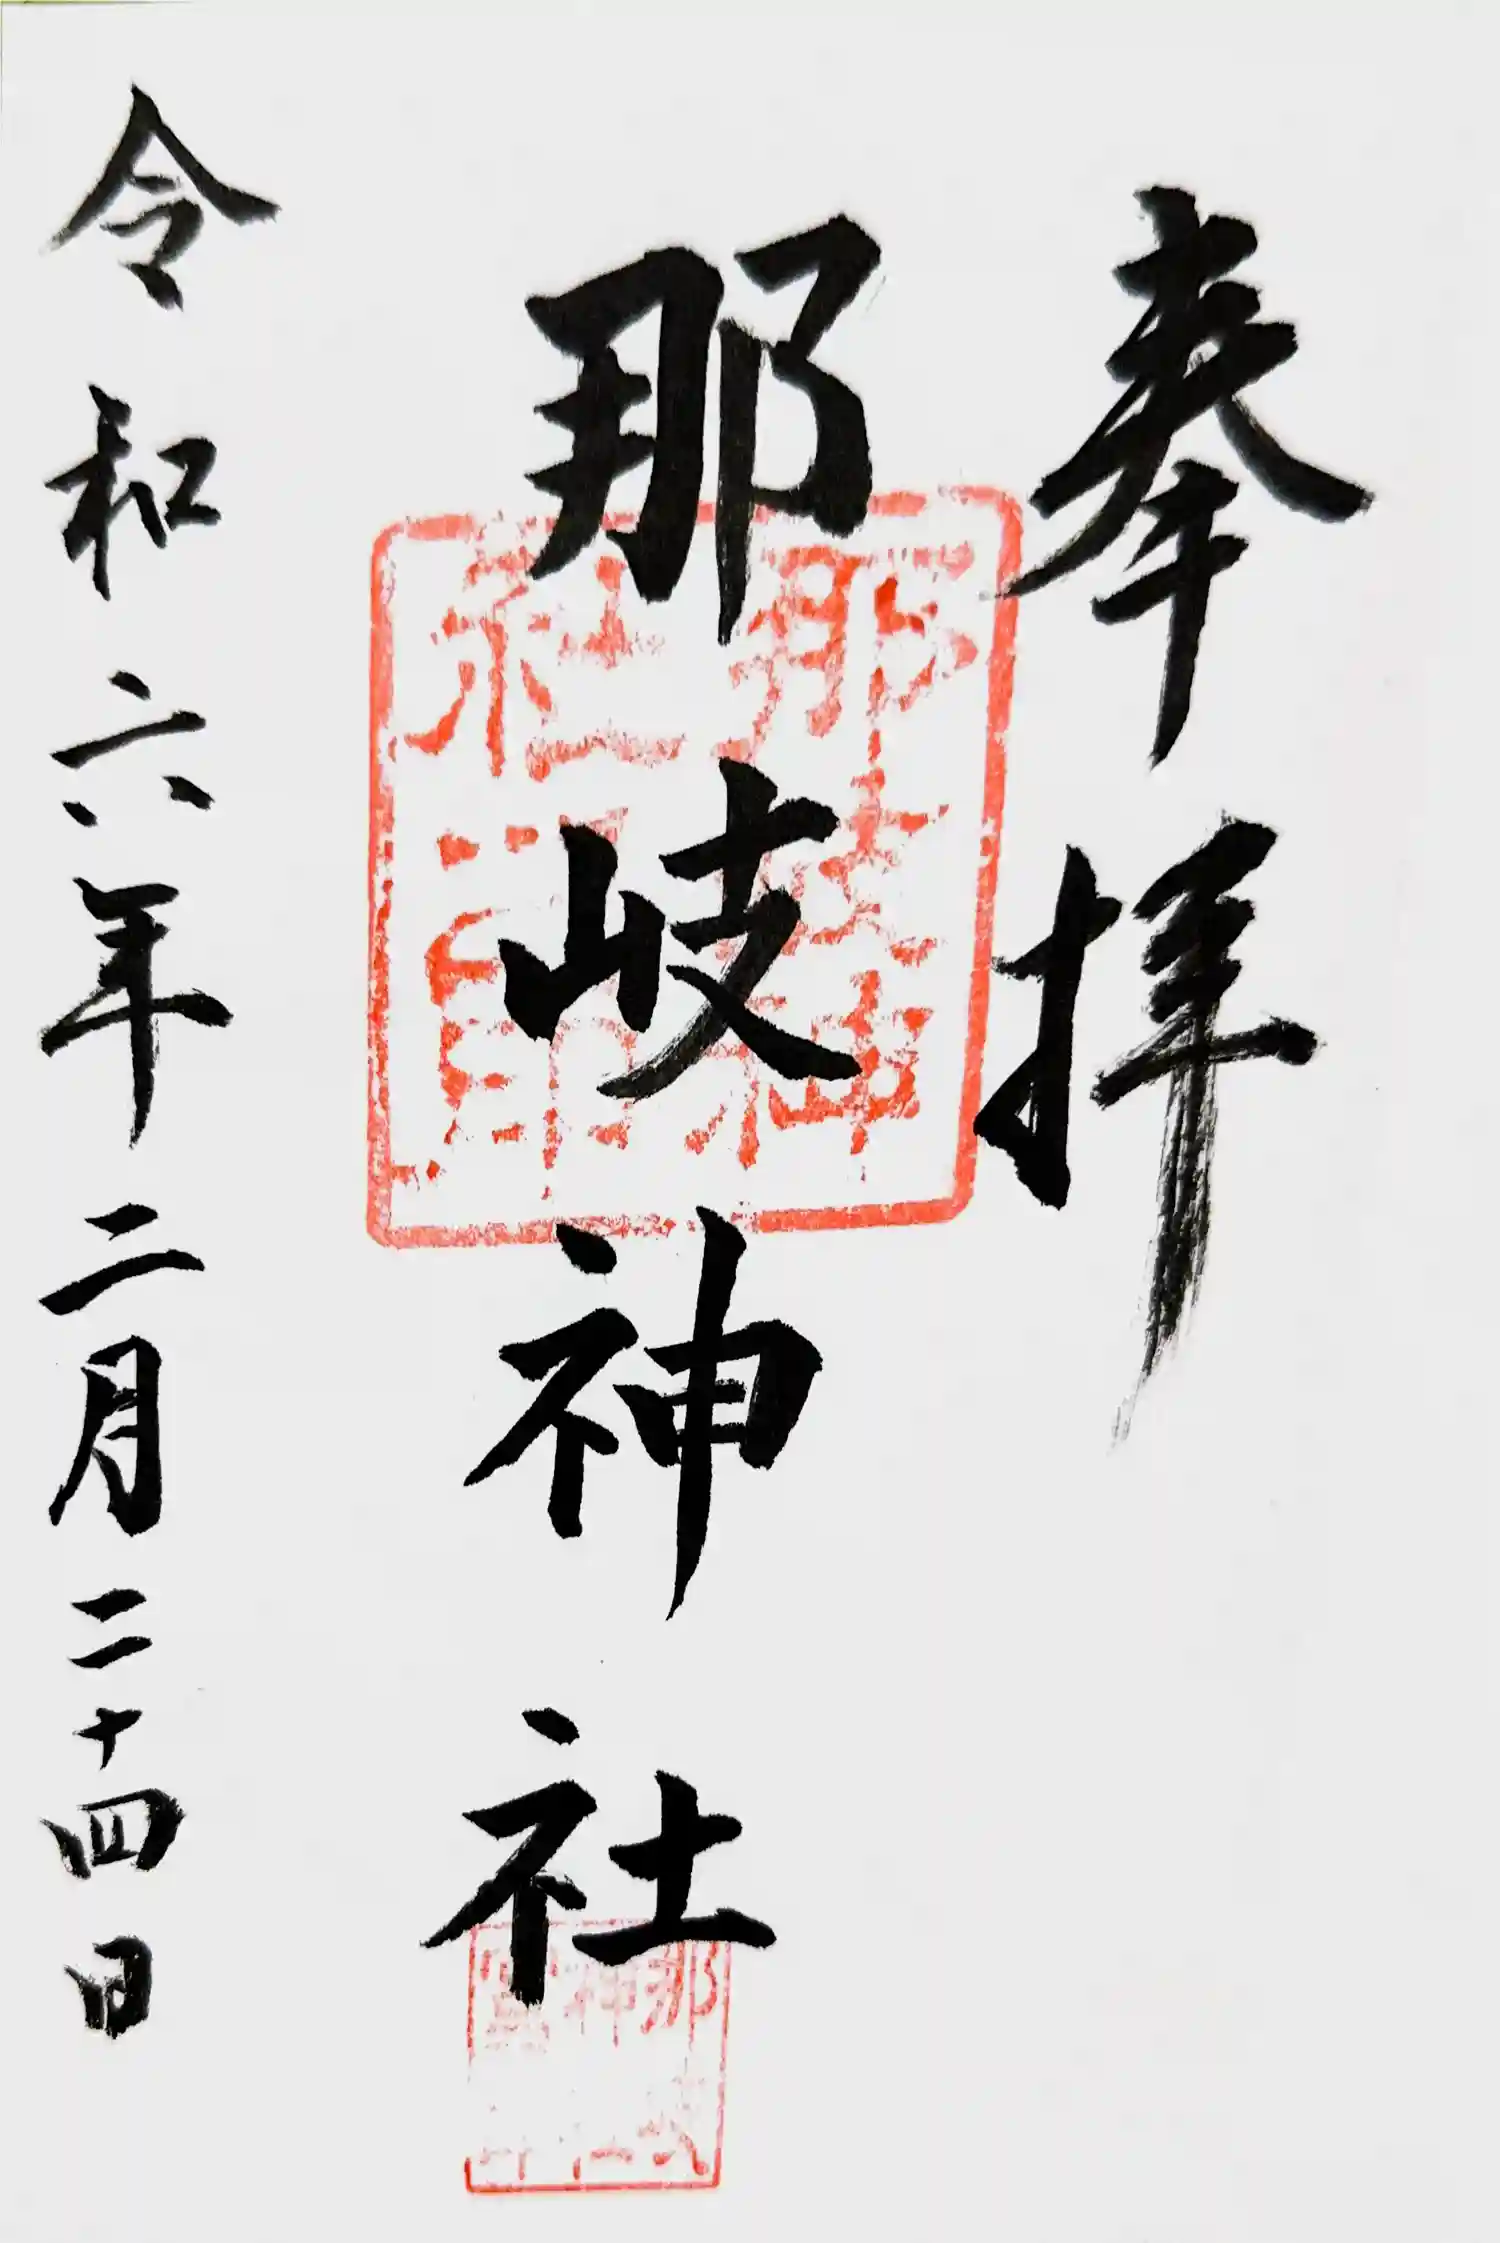 奉拝
那岐神社
令和六年二月二十四日